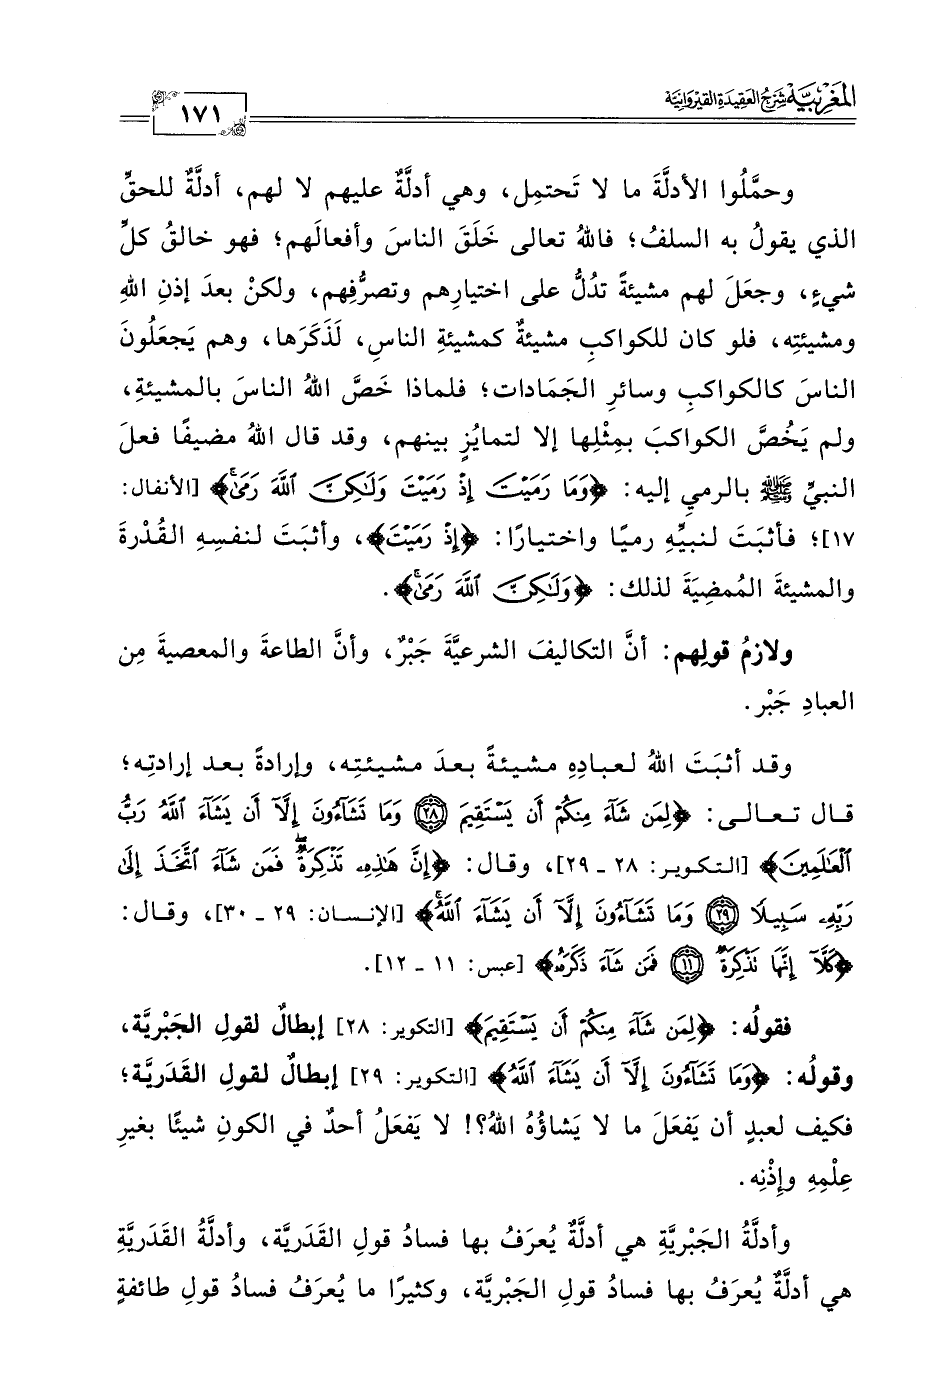 المَغربيَّة شَرْحُ العَقِيدَةِ القَيْرَوَانِيَّة
١٧١
وحمَّلُوا الأدلَّةَ ما لا تَحتمِل، وهي أدلَّةٌ عليهم لا لهم، أدلَّةٌ للحقِّ
الذي يقولُ به السلفُ؛ فاللهُ تعالى خَلَقَ الناسَ وأفعالَهم؛ فهو خالقُ كلِّ
شيءٍ، وجعَلَ لهم مشيئةً تدُلُّ على اختيارِهم وتصرُّفِهم، ولكنْ بعدَ إذنِ اللهِ
ومشيئتِه، فلو كان للكواكبِ مشيئةٌ كمشيئةِ الناسِ، لَذَكَرَها، وهم يَجعَلُونَ
الناسَ كالكواكبِ وسائرِ الجَمَادات؛ فلماذا خَصَّ اللهُ الناسَ بالمشيئةِ،
ولم يَخُصَّ الكواكبَ بمِثْلِها إلا لتمايُزٍ بينهم، وقد قال اللهُ مضيفًا فعلَ
النبيِّ ﷺ بالرمي إليه: ﴿وَمَا رَمَيْتَ إِذْ رَمَيْتَ وَلَٰكِنَّ ٱللَّهَ رَمَىٰۚ﴾ [الأنفال:
١٧]؛ فأثبَتَ لنبيِّهِ رميًا واختيارًا: ﴿إِذْ رَمَيْتَ﴾، وأثبَتَ لنفسِهِ القُدْرةَ
والمشيئةَ المُمضِيَةَ لذلك: ﴿وَلَٰكِنَّ ٱللَّهَ رَمَىٰۚ﴾.
ولازمُ قولِهم: أنَّ التكاليفَ الشرعيَّةَ جَبْرٌ، وأنَّ الطاعةَ والمعصيةَ مِن
العبادِ جَبْر.
وقد أثبَتَ اللهُ لعبادِهِ مشيئةً بعدَ مشيئتِه، وإرادةً بعد إرادتِه؛
قال تعالى: ﴿لِمَن شَآءَ مِنكُمْ أَن يَسْتَقِيمَ ٢٨ وَمَا تَشَآءُونَ إِلَّآ أَن يَشَآءَ ٱللَّهُ رَبُّ
ٱلْعَٰلَمِينَ﴾ [التكوير: ٢٨ ـ ٢٩]، وقال: ﴿إِنَّ هَٰذِهِۦ تَذْكِرَةٌۖ فَمَن شَآءَ ٱتَّخَذَ إِلَىٰ
رَبِّهِۦ سَبِيلًا ٢٩ وَمَا تَشَآءُونَ إِلَّآ أَن يَشَآءَ ٱللَّهُۚ﴾ [الإنسان: ٢٩ ـ ٣٠]، وقال:
﴿كَلَّآ إِنَّهَا تَذْكِرَةٌ ١١ فَمَن شَآءَ ذَكَرَهُۥ﴾ [عبس: ١١ ـ ١٢].
فقولُه: ﴿لِمَن شَآءَ مِنكُمْ أَن يَسْتَقِيمَ﴾ [التكوير: ٢٨] إبطالٌ لقولِ الجَبْريَّة،
وقولُه: ﴿وَمَا تَشَآءُونَ إِلَّآ أَن يَشَآءَ ٱللَّهُ﴾ [التكوير: ٢٩] إبطالٌ لقولِ القَدَريَّة؛
فكيف لعبدٍ أن يَفعَلَ ما لا يَشاؤُهُ اللهُ؟! لا يَفعَلُ أحدٌ في الكونِ شيئًا بغيرِ
عِلْمِهِ وإِذْنِه.
وأدلَّةُ الجَبْريَّةِ هي أدلَّةٌ يُعرَفُ بها فسادُ قولِ القَدَريَّة، وأدلَّةُ القَدَريَّةِ
هي أدلَّةٌ يُعرَفُ بها فسادُ قولِ الجَبْريَّة، وكثيرًا ما يُعرَفُ فسادُ قولِ طائفةٍ